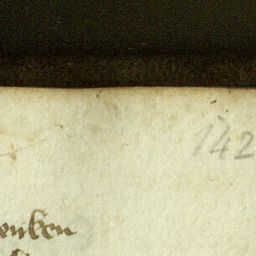 142
enken